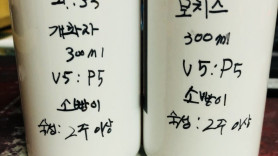 개화자
300ml
V5:P5
소방이
숙성:2주 이상
보치스
300ml
V5:P5
소방이
숙성:2주 이상